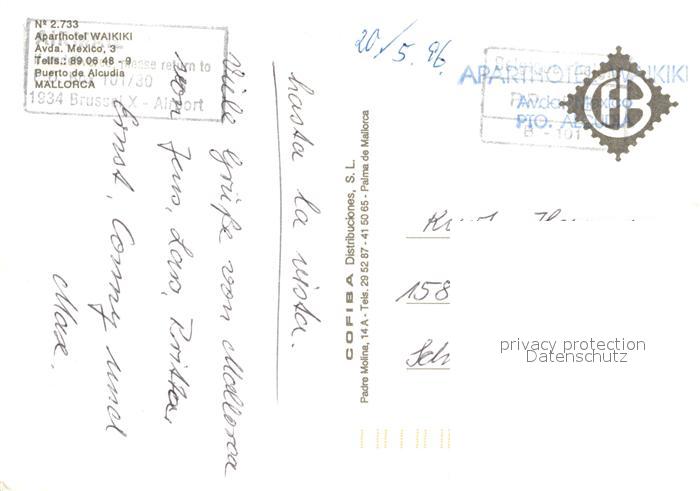 Nº 2.733
Aparthotel WAIKIKI
Avda. Mexico, 3
Telfs.: 89 06 48 - 9
Puerto de Alcudia
MALLORCA
please return to
101/30
1934 Brussel X - Airport
20/5. 96.
APARTHOTEL WAIKIKI
Avda. Mexico
PTO. ALCUDIA
B 101
hasta la vista.
Viele Grüße von Mallorca
von Jens, Lars, Britta,
Ernst, Conny und
Max.
COFIBA Distribuciones, S. L.
Padre Molina, 14 A - Tels. 29 52 87 - 41 50 65 - Palma de Mallorca
158
Sch
privacy protection
Datenschutz